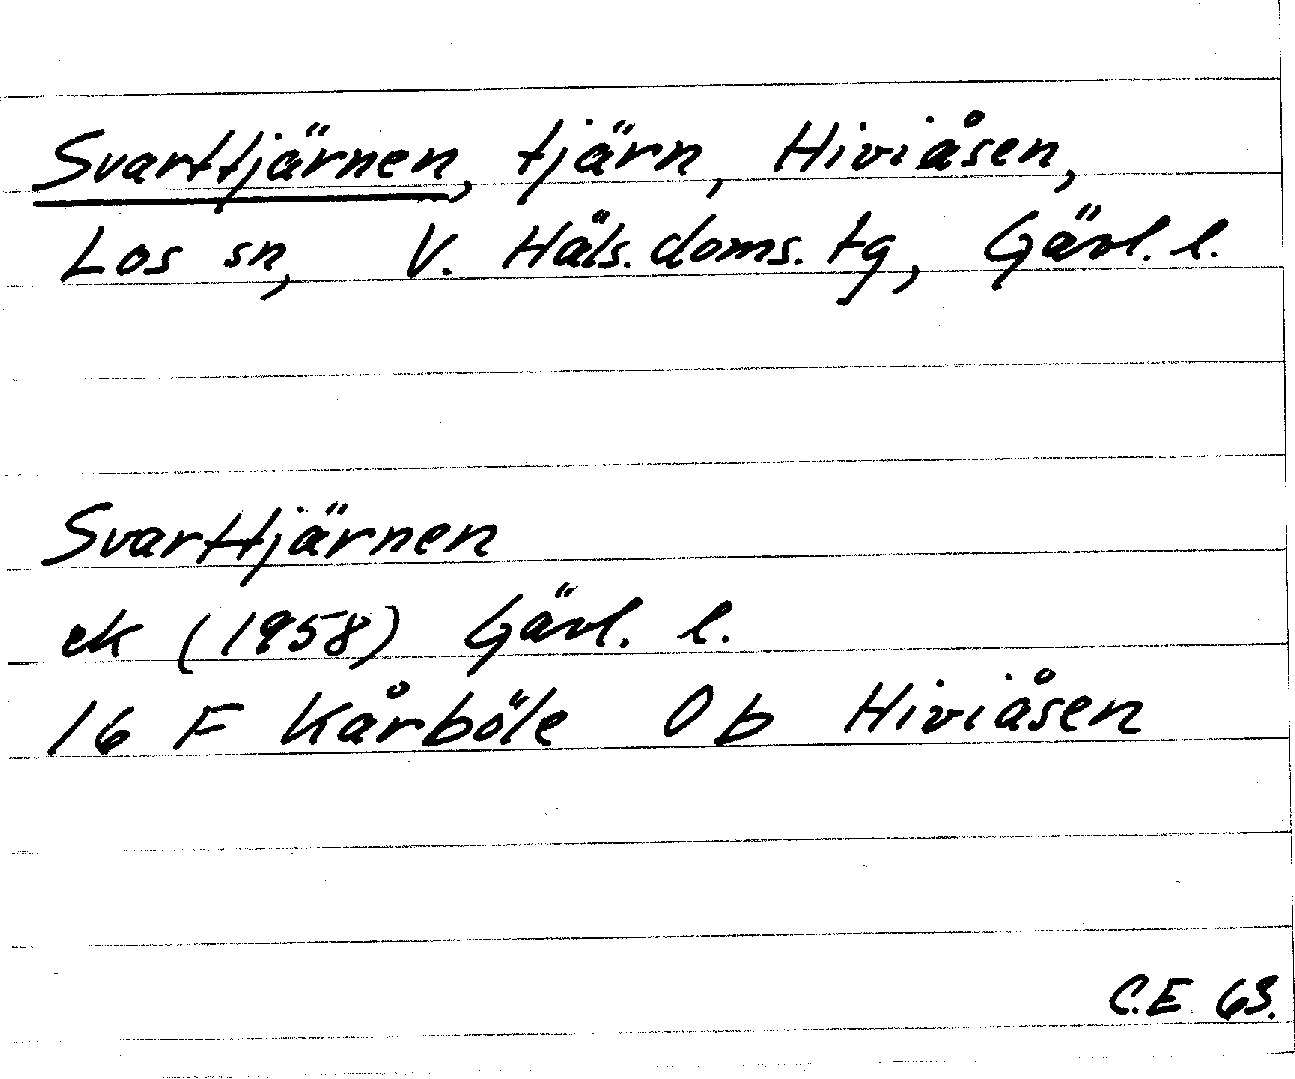 Svarttjärnen, tjärn, Hiviåsen,
Los sn, V. Häls. doms. tg, Gävl. l.
Svarttjärnen
ek (1958) Gävl. l.
16 F Kårböle 0 b Hiviåsen
C.E. 63.